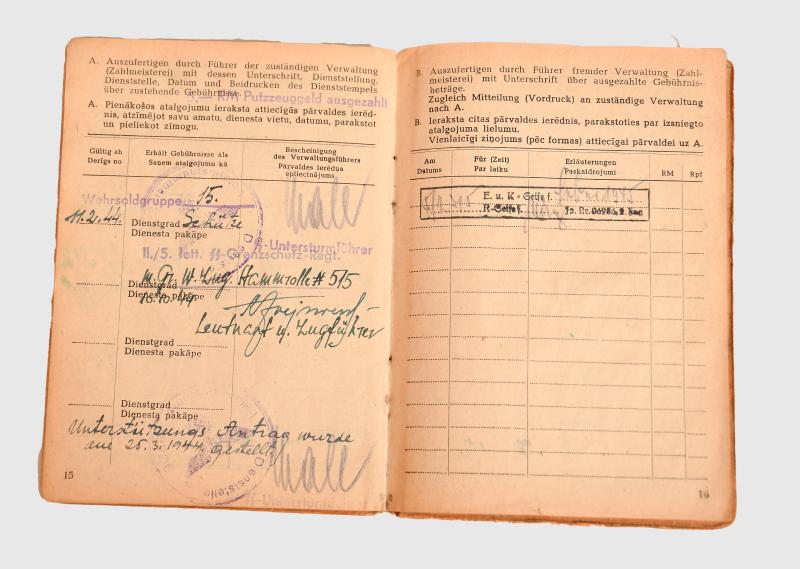 A. Auszufertigen durch Führer der zuständigen Verwaltung
(Zahlmeisterei) mit dessen Unterschrift, Dienststellung,
Dienststelle, Datum und Beidrucken des Dienststempels
über zustehende Gebührnisse.
RM Putzzeuggeld ausgezahlt
A. Pienākošos atalgojumu ieraksta attiecīgās pārvaldes ierēd-
nis, atzīmējot savu amatu, dienesta vietu, datumu, parakstot
un pieliekot zīmogu.
Gültig ab
Derīgs no
Erhält Gebührnisse als
Saņem atalgojumu kā
Bescheinigung
des Verwaltungsführers
Pārvaldes ierēdņa
apliecinājums
Wehrsoldgruppe 15.
11.2.44. Dienstgrad Schütze
Dienesta pakāpe
-Untersturmführer
II./5. lett. -Grenzschutz-Regt.
Dienstgrad
Dienesta pakāpe
16.10.44
Leutnant u. Zugführer
Dienstgrad
Dienesta pakāpe
Dienstgrad
Dienesta pakāpe
Unterstützungs Antrag wurde
am 25.3.1944 gestellt
Dienststelle
15
B. Auszufertigen durch Führer fremder Verwaltung (Zahl-
meisterei) mit Unterschrift über ausgezahlte Gebührnis-
beträge.
Zugleich Mitteilung (Vordruck) an zuständige Verwaltung
nach A.
B. Ieraksta citas pārvaldes ierēdnis, parakstoties par izsniegto
atalgojuma lielumu.
Vienlaicīgi ziņojums (pēc formas) attiecīgai pārvaldei uz A.
Am
Datums
Für (Zeit)
Par laiku
Erläuterungen
Paskaidrojumi
RM
Rpf
E. u. K -
16